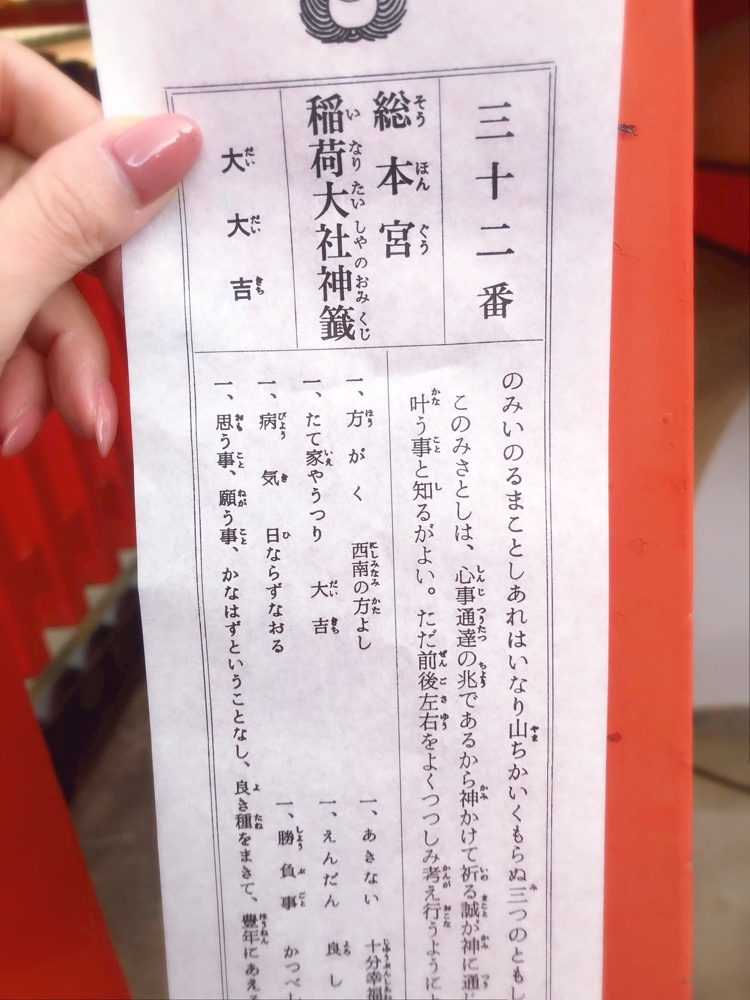 三十二番
総本宮
稲荷大社神籤
大大吉
のみいのるまことしあれはいなり山ちかいくもらぬ三つのともし
このみさとしは、心事通達の兆であるから神かけて祈る誠が神に通じ
叶う事と知るがよい。ただ前後左右をよくつつしみ考え行うようにと
一、方がく 西南の方よし
一、あきない 十分幸福
一、たて家やうつり 大吉
一、えんだん 良し
一、病気 日ならずなおる
一、勝負事 かつべし
一、思う事、願う事、かなはずということなし、良き種をまきて、豊年にあえる